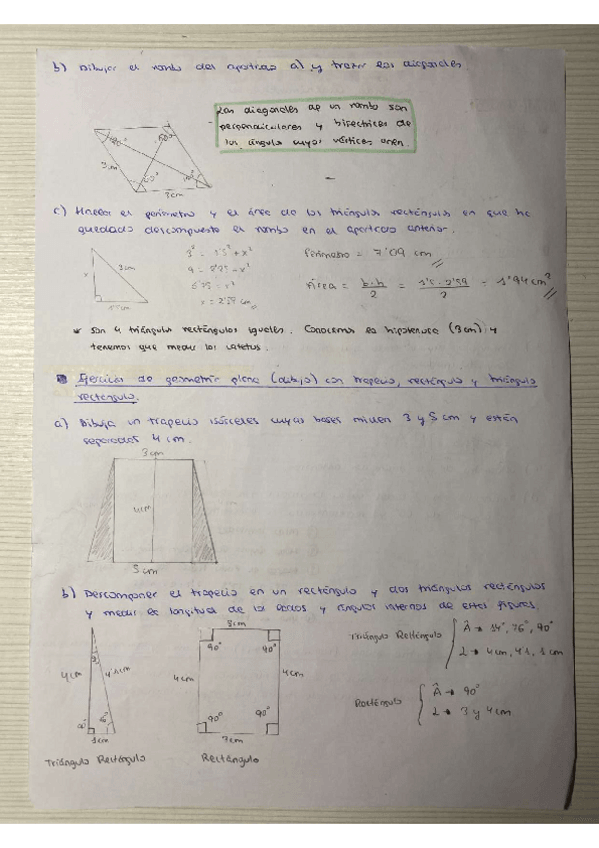 b) Dibujar el rombo del apartado a) y trazar las diagonales.
Las diagonales de un rombo son
perpendiculares y bisectrices de
los ángulos cuyos vértices unen.
3cm
60°
3cm
c) Hallar el perímetro y el área de los triángulos rectángulos en que ha
quedado descompuesto el rombo en el apartado anterior.
3² = 1'5² + x²
9 = 2'25 + x²
6'75 = x²
x = 2'59 cm
x
3cm
1'5cm
Perímetro = 7'09 cm
Área = b·h/2 = 1'5 · 2'59/2 = 1'94 cm²
* Son 4 triángulos rectángulos iguales. Conocemos la hipotenusa (3cm) y
tenemos que medir los catetos.
Ejercicios de geometría plana (dibujo) con trapecio, rectángulo y triángulo
rectángulo.
a) Dibuja un trapecio isósceles cuyas bases miden 3 y 5 cm y están
separadas 4 cm.
3cm
4cm
5cm
b) Descomponer el trapecio en un rectángulo y dos triángulos rectángulos
y medir la longitud de los lados y ángulos internos de estas figuras.
4cm
4'1cm
1cm
Triángulo Rectángulo
3cm
90° 90°
4cm 4cm
90° 90°
3cm
Rectángulo
Triángulo Rectángulo
Â → 14°, 76°, 90°
L → 4cm, 4'1, 1 cm
Rectángulo
Â → 90°
L → 3 y 4cm